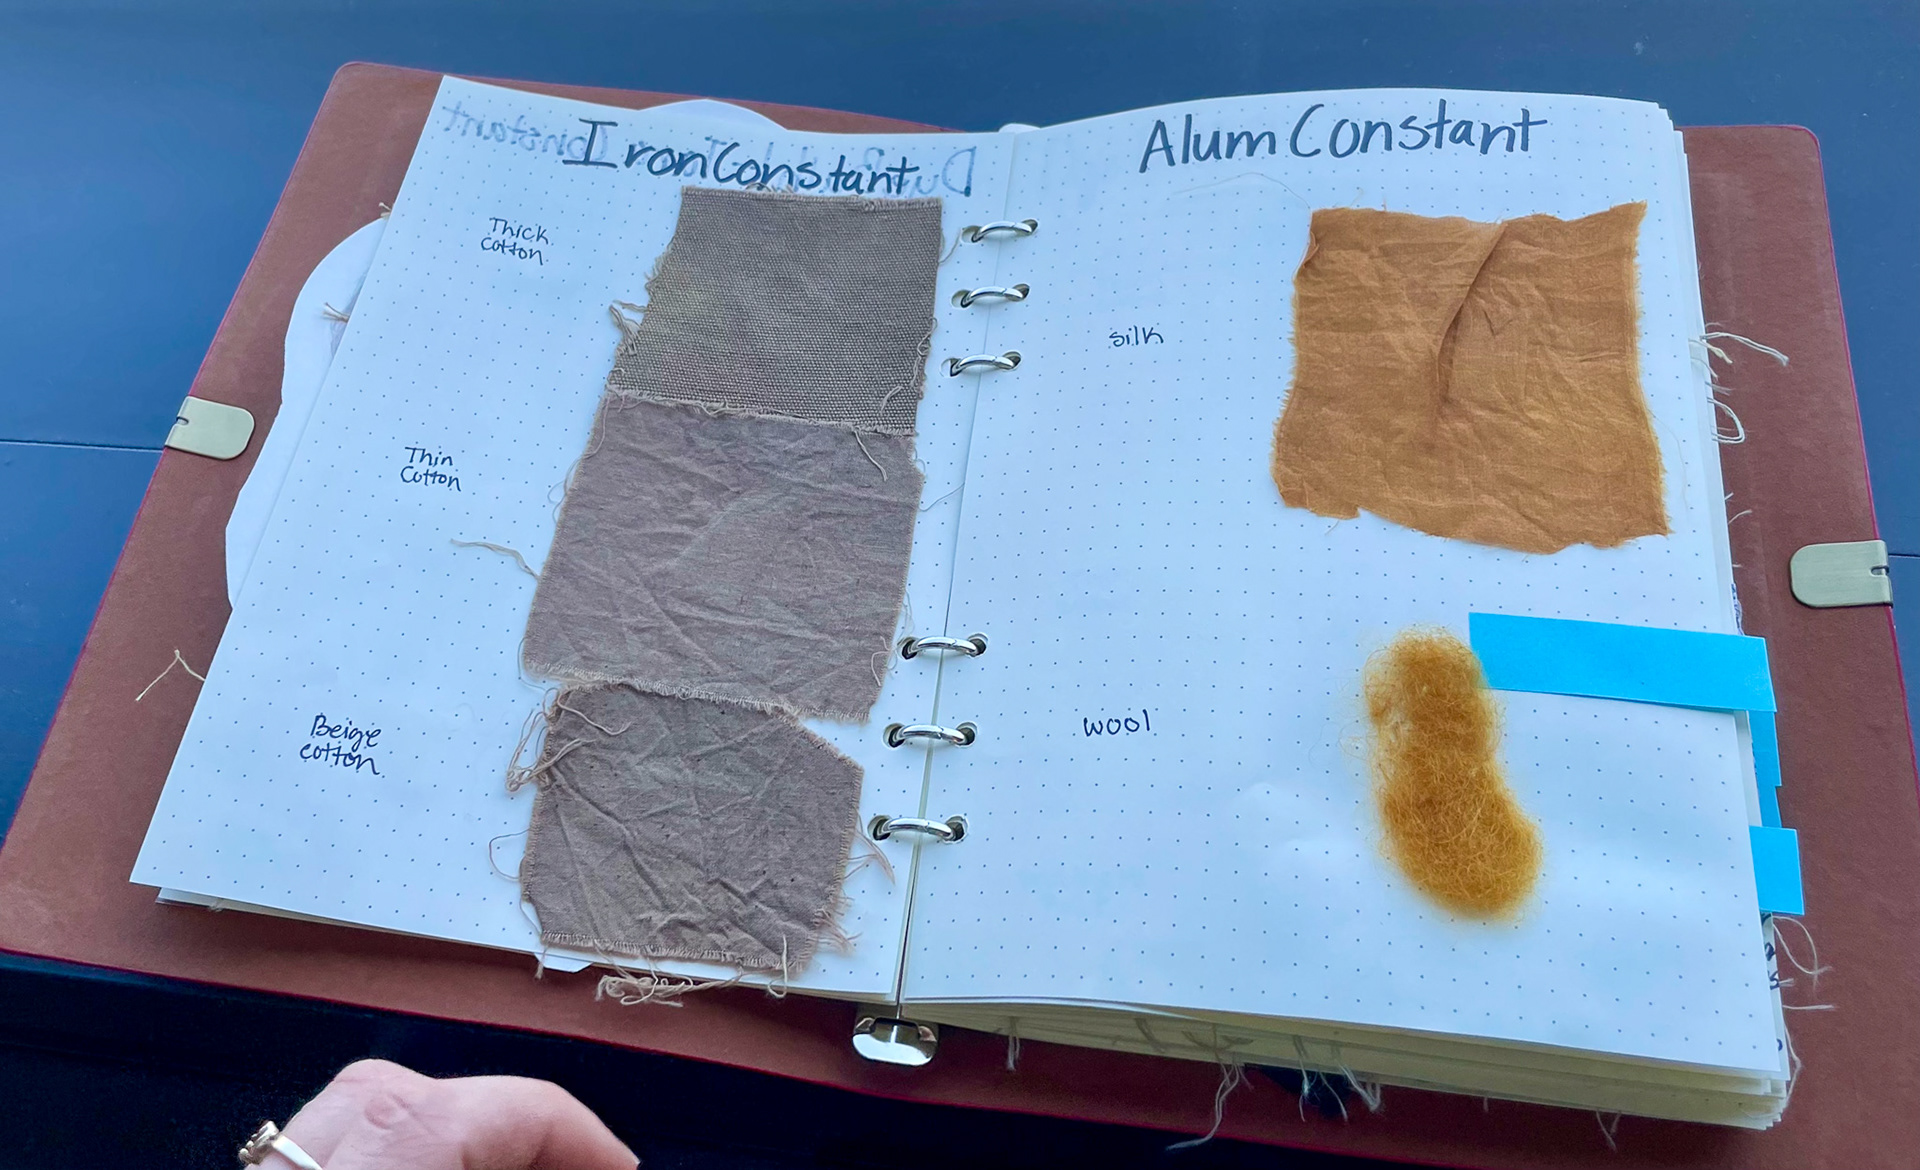 Iron Constant
Thick
Cotton
Thin
Cotton
Beige
cotton
Alum Constant
silk
wool